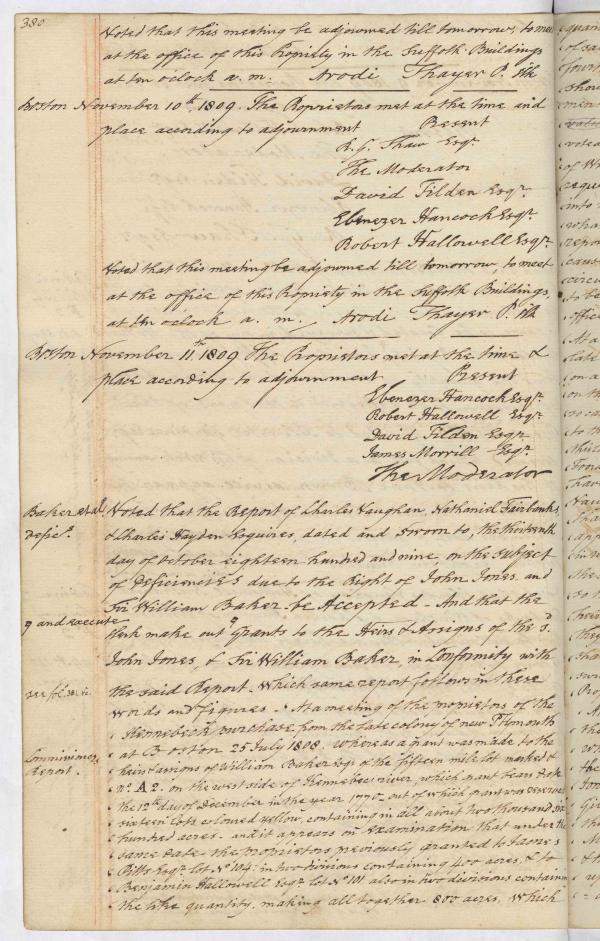 380
Voted that this meeting be adjourned till tomorrow, to meet
at the office of this Propriety in the Suffolk Buildings
at ten oclock a. m. Arodi Thayer P. Clk
Boston November 10th. 1809. The Proprietors met at the time and
place according to adjournment Present
R. G. Shaw Esqr.
The Moderator
David Tilden Esqr.
Ebenezer Hancock Esqr.
Robert Hallowell Esqr.
Voted that this meeting be adjourned till tomorrow, to meet
at the office of this Propriety in the Suffolk Buildings,
at ten oclock a. m. Arodi Thayer P. Clk
Boston November 11th. 1809 The Proprietors met at the time &
place according to adjournment Present
Ebenezer Hancock Esqr.
Robert Hallowell Esqr.
David Tilden Esqr.
James Morrill Esqr.
The Moderator
Baker et al Voted that the Report of Charles Vaughan, Nathaniel Fairbanks,
Deficy. & Charles Hayden Esquires, dated and sworn to, the thirteenth
day of October eighteen hundred and nine, on the Subject
of Deficiencies due to the Right of John Jones and
Sir William Baker be Accepted - And that the
and execute Clerk make out Grants to the Heirs & Assigns of the sd.
John Jones, & Sir William Baker, in Conformity with
the said Report. Which same report follows in these
words and figures. At a meeting of the proprietors of the
Kennebeck purchase from the late colony of new Plymouth
at Boston 25 July 1808. whereas a grant was made to the
Commissioners heirs & assigns of William Baker Esqr. of the fifteen mile lot marked &
Report. No. A 2. on the west side of Kennebec river, which grant bears date
the 12th day of December in the year 1770, out of which grant was reserved
sixteen lots coloured yellow, containing in all about two thousand six
hundred acres. and it appears on examination that under the
same date the proprietors previously granted to James
Pitts Esqr. lot No 104. in two divisions containing 400 acres, & to
Benjamin Hallowell Esqr. lot No 101 also in two divisions containing
the like quantity. making all together 800 acres, which